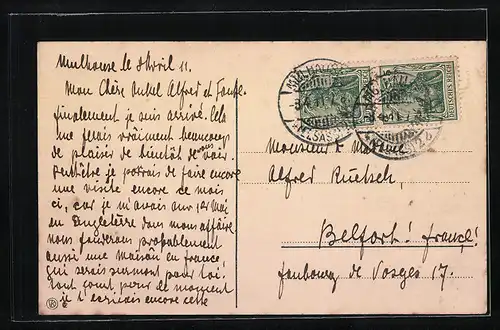 Mulhouse le 8 Avril 11.
Mon Chère Onkel Alfred et Tante
finalement je suis arrivé. Cela
me ferais vraiment beaucoup
de plaisir de bientôt vous voir.
Peut être je portrais de faire encore
une visite encore ce mois
ci, car je m'avais sur 1er Mai
en Angleterre dans mon affaire
nous fonderon propablement
aussi une maison en france
qui serais surmont pour toi!
Tout cont pour de moment
je t'écriais encore cette
Monsieur & Madame
Alfred Ruetsch,
Belfort! france!
faubourg de Vosges 17.
MÜLHAUSEN
8.4.11.
(ELSASS)
DEUTSCHES REICH